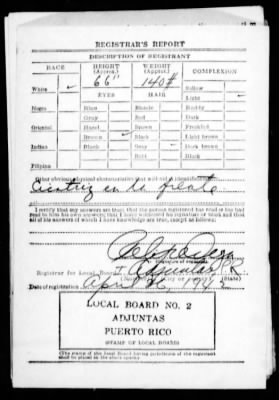 REGISTRAR'S REPORT
DESCRIPTION OF REGISTRANT
RACE
HEIGHT
(Approx.)
WEIGHT
(Approx.)
COMPLEXION
66"
140#
White ✓
EYES
HAIR
Sallow
Light ✓
Negro
Blue
Blonde
Ruddy
Gray
Red
Dark
Oriental
Hazel
Brown
Freckled
Brown ✓
Black ✓
Light brown
Indian
Black
Gray
Dark brown
Bald
Black
Filipino
Other obvious physical characteristics that will aid in identification
Cicatriz en la frente
I certify that my answers are true; that the person registered has read or has had
read to him his own answers; that I have witnessed his signature or mark and that
all of his answers of which I have knowledge are true, except as follows:
Registrar for Local Board
Adjuntas, P.R.
Date of registration April 26, 1942
LOCAL BOARD NO. 2
ADJUNTAS
PUERTO RICO
(STAMP OF LOCAL BOARD)
(The stamp of the Local Board having jurisdiction of the registrant
shall be placed in the above space.)